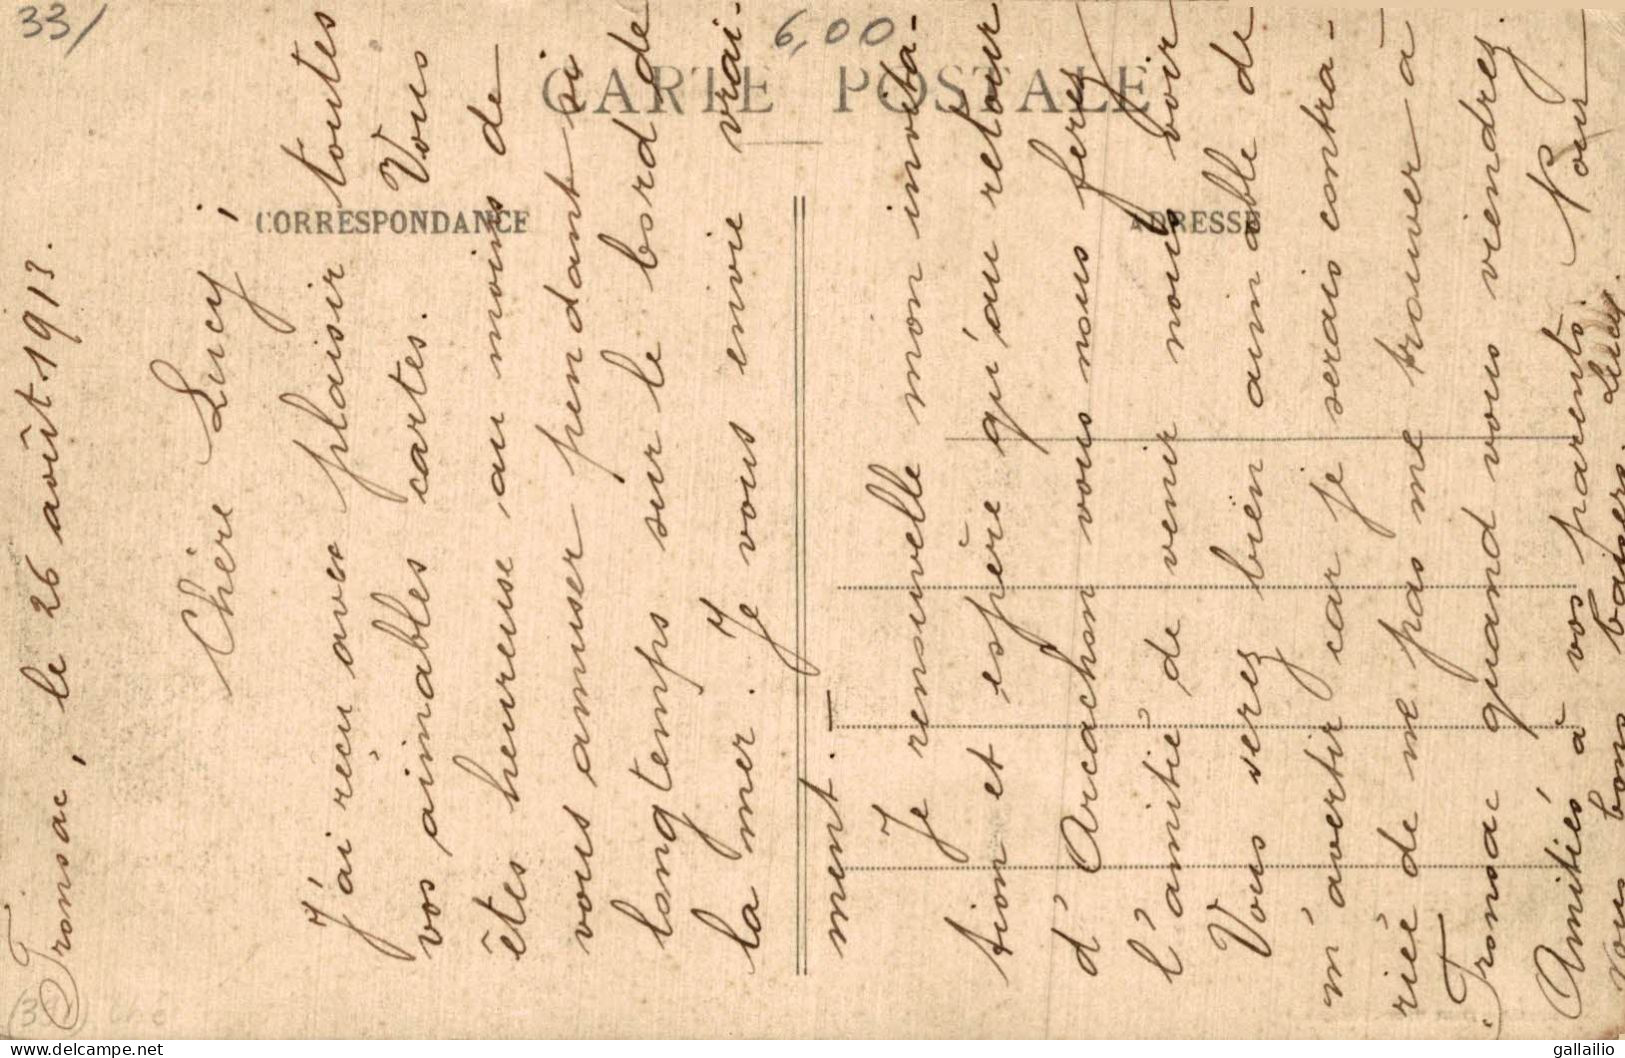 33/
6,00
CARTE POSTALE
CORRESPONDANCE
ADRESSE
Fronsac, le 26 août 1913.
Chère Lucy,
J'ai reçu avec plaisir toutes
vos aimables cartes. Vous
êtes heureuse au moins de
vous amuser pendant si
longtemps sur le bord de
la mer. Je vous envie vrai-
ment.
Je renouvelle mon invita-
tion et espère qu'au retour
d'Arcachon vous nous ferez
l'amitié de venir nous voir
Vous serez bien aimable de
m'avertir car je serais contra-
riée de ne pas me trouver à
Fronsac quand vous viendrez.
Amitiés à vos parents. Pour
vous bons baisers. Lucy.
www.delcampe.net
gallailio